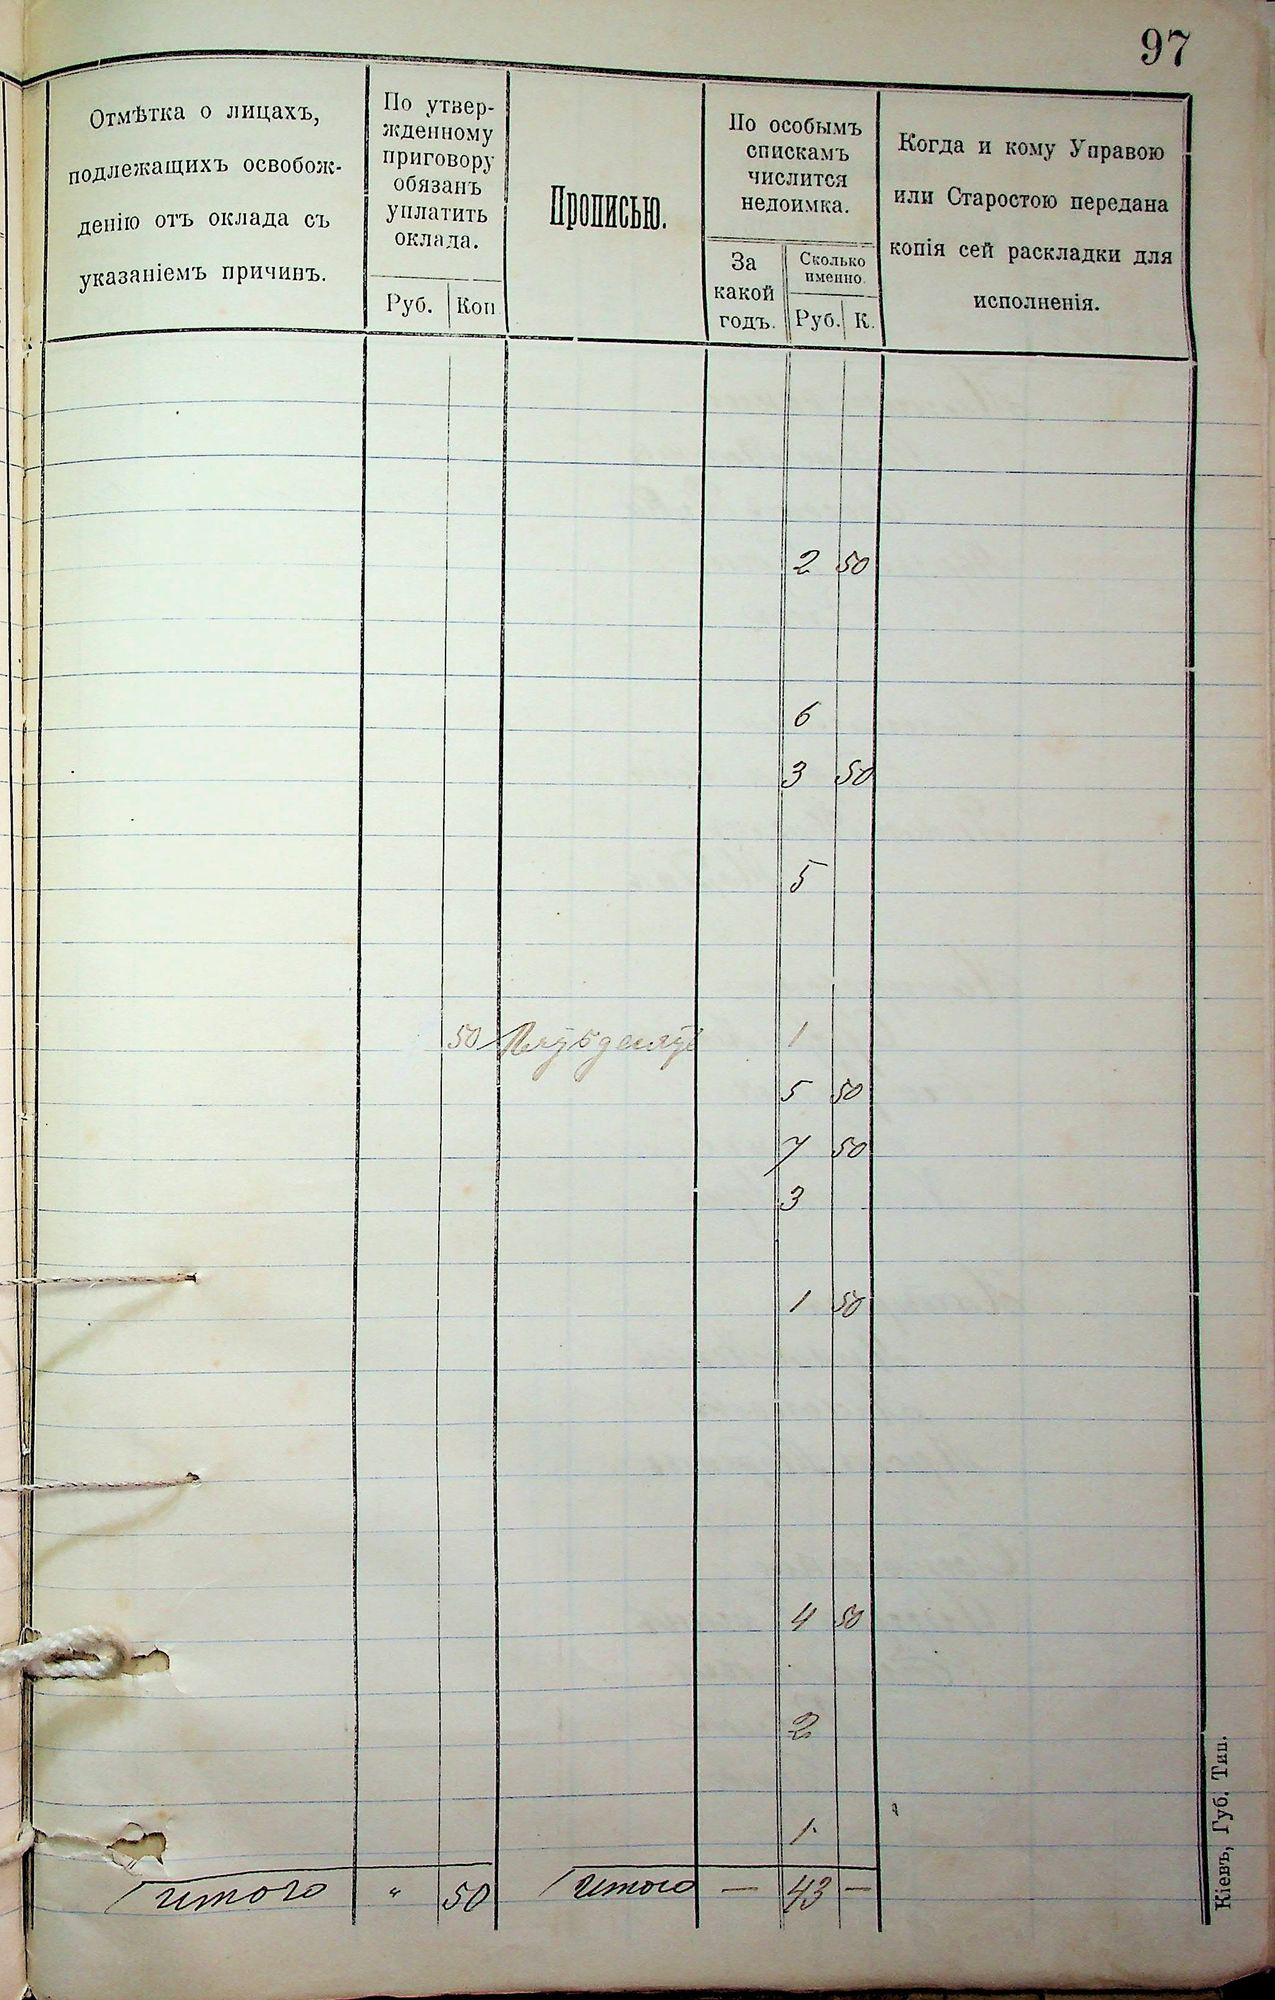 97
Отмѣтка о лицахъ,
подлежащихъ освобож-
денію отъ оклада съ
указаніемъ причинъ.
По утвер-
жденному
приговору
обязанъ
уплатить
оклада.
Руб. Коп
Прописью.
По особымъ
спискамъ
числится
недоимка.
За
какой
годъ.
Сколько
именно.
Руб. К.
Когда и кому Управою
или Старостою передана
копія сей раскладки для
исполненія.
2 50
6
3 50
5
50 Пятьдесятъ 1
5 50
7 50
3
1 50
4 50
2
1
Итого " 50 Итого — 43 —
Кіевъ, Губ. Тип.